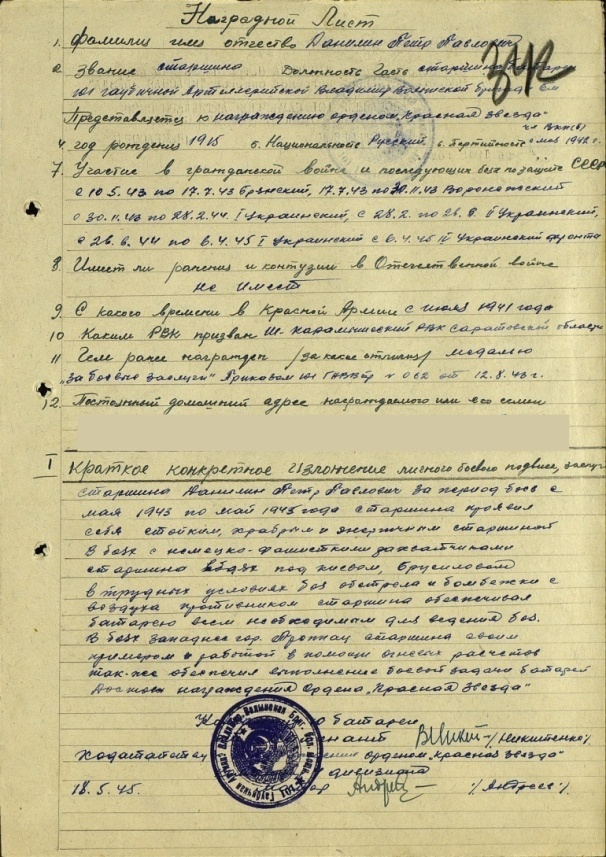 Наградной Лист
1. Фамилия имя отчество Данилин Петр Павлович
2. Звание старшина Должность Часть старшина батареи
101 гаубичной Артиллерийской Владимир Волынской бригады
Представляется к награждению орденом „Красная Звезда"
чл ВКП(б)
4. год рождения 1915 5. Национальность Русский 6. Партийность с мая 1942 г.
7. Участие в гражданской войне и последующих боях по защите СССР
с 10.5.43 по 17.7.43 Брянский, 17.7.43 по 30.11.43 Воронежский
с 30.11.43 по 28.2.44 I Украинский, с 28.2. по 26.6. II Украинский,
с 26.6.44 по 6.4.45 I Украинский с 6.4.45 IV Украинский фронта
8. Имеет ли ранения и контузии в Отечественной войне
не имеет
9. С какого времени в Красной Армии с июля 1941 года
10 Каким РВК призван Ш-Карамышский РВК Саратовской области
11 Чем ранее награжден /за какие отличия/ медалью
„За боевые заслуги" Приказом 101 № 062 от 12.8.43 г.
12. Постоянный домашний адрес награждаемого или его семьи
I Краткое конкретное изложение личного боевого подвига, заслуг
старшина Данилин Петр Павлович за период боев с
мая 1943 по май 1945 года старшина проявил
себя стойким, храбрым и энергичным старшиной
В боях с немецко-фашисткими захватчиками
старшина в боях под Киевом, Брусиловом
в трудных условиях боя обстрела и бомбежки с
воздуха противником старшина обеспечивал
батарею всем необходимым для ведения боя.
В боях западнее гор. старшина своим
примером и работой в помощи огневых расчетов
так-же обеспечил выполнение боевой задачи батареи
Достоин награждения Ордена „Красная Звезда"
батареи
/Никитенко/
Ходатайст орденом „Красная Звезда"
дивизиона
18.5.45. /Андреев/